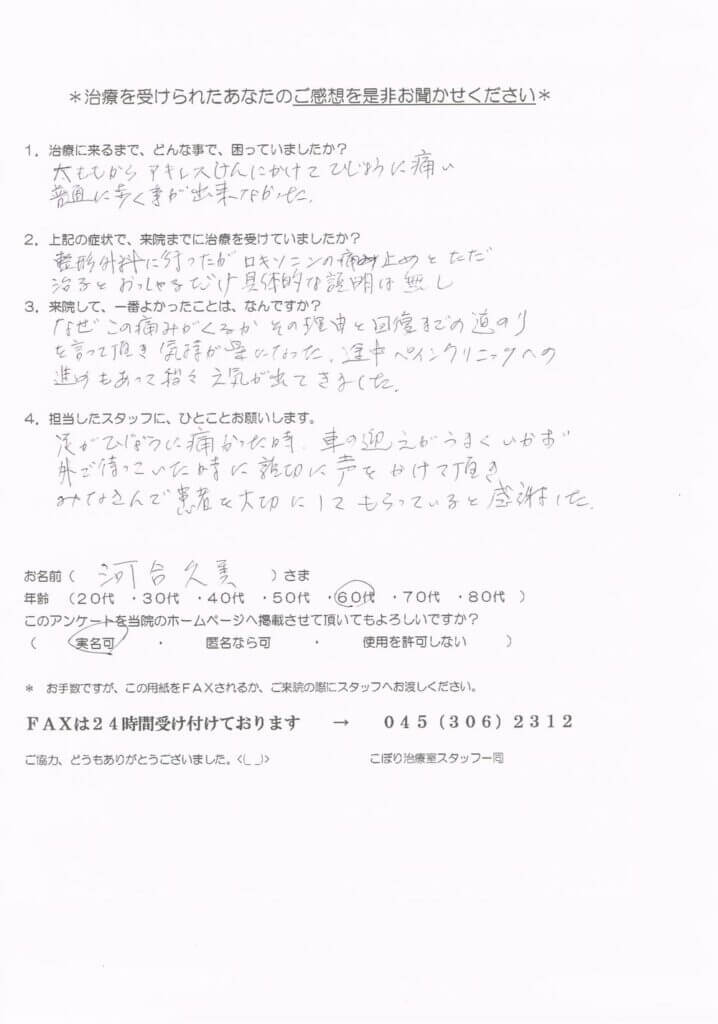 ＊治療を受けられたあなたのご感想を是非お聞かせください＊
1．治療に来るまで、どんな事で、困っていましたか？
太ももから アキレスけんにかけて ひじょうに痛い
普通に歩く事が出来なかった．
2．上記の症状で、来院までに治療を受けていましたか？
整形外科に行ったが ロキソニンの痛み止めと ただ
治ると おっしゃるだけ 具体的な説明は無し
3．来院して、一番よかったことは、なんですか？
なぜ この痛みがくるか その理由と 回復までの道のり
を言って頂き 気持が楽になった．途中 ペインクリニックへの
進めもあって 段々 元気が出てきました．
4．担当したスタッフに、ひとことお願いします。
足が ひじょうに痛かった時．車の迎えが うまくいかず
外で待っていた時に 親切に 声をかけて頂き
みなさんで 患者を大切にして もらっていると 感謝した．
お名前（ 河合久美 ）さま
年齢 （20代 ・30代 ・40代 ・50代 ・60代 ・70代 ・80代 ）
このアンケートを当院のホームページへ掲載させて頂いてもよろしいですか？
（ 実名可 ・ 匿名なら可 ・ 使用を許可しない ）
＊ お手数ですが、この用紙をFAXされるか、ご来院の際にスタッフへお渡しください。
FAXは24時間受け付けております → 045（306）2312
ご協力、どうもありがとうございました。<(_ _)> こぼり治療室スタッフ一同